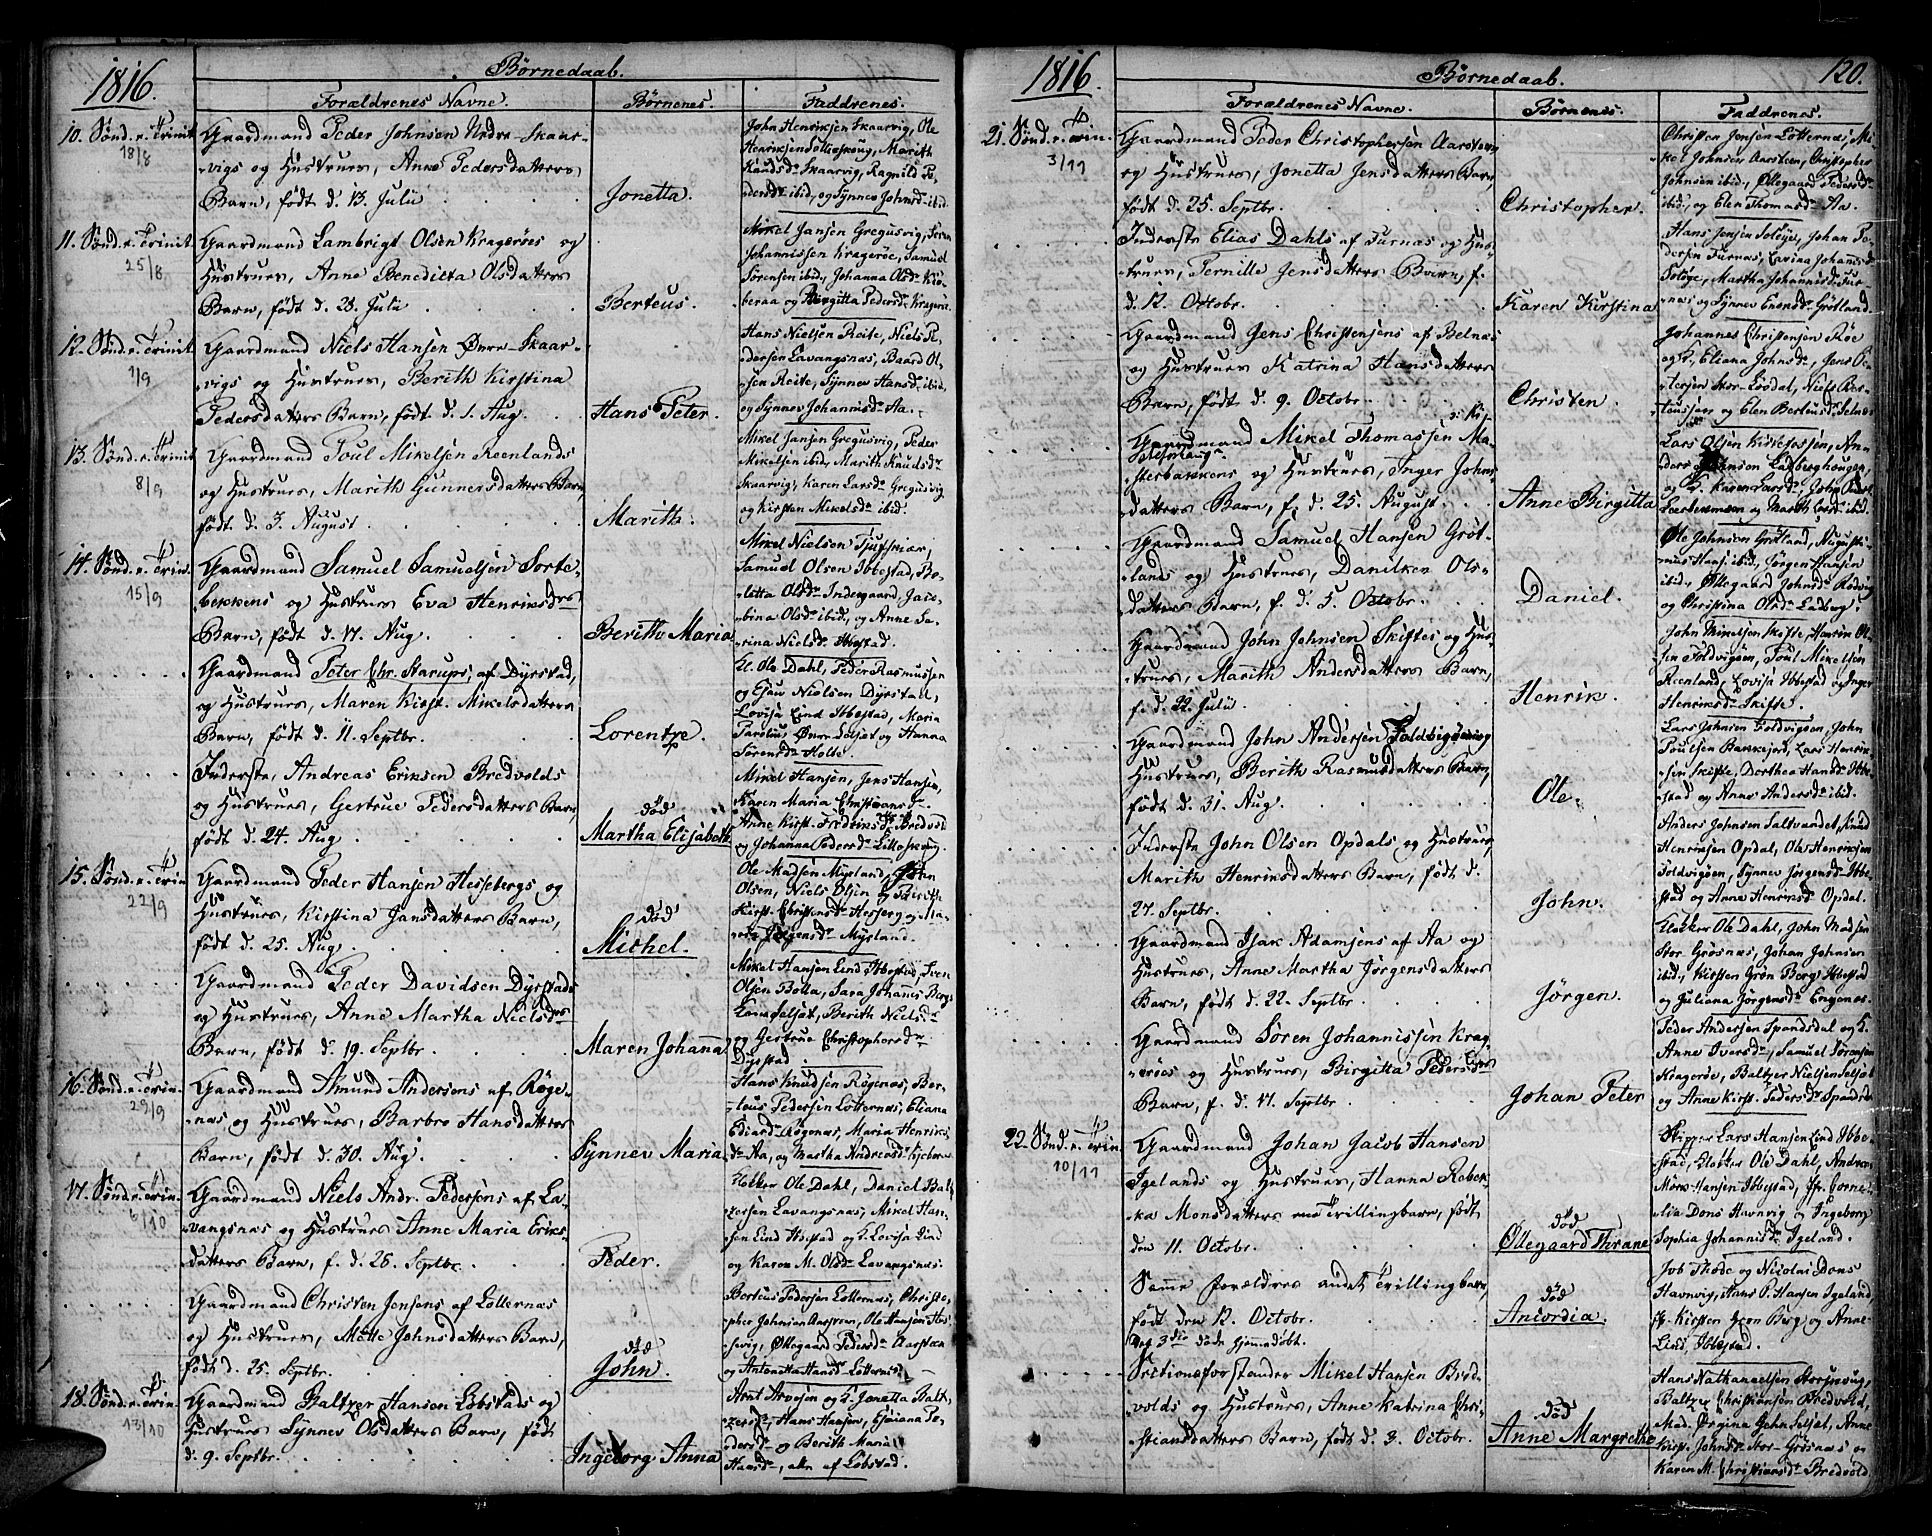 1816.
Børnedaab.
Forældrenes Navne.
Børnenes.
Faddrenes.
10. Sønd. e. Trinit.
18/8
Gaardmand Peder Johnsen Nedre-Skaar-
vigs og Hustrues, Anne Pedersdatters
Barn, født d. 13. Julii
Jonetta.
John Henriksen Skaarvig, Ole
Henriksen Lilleskoug, Marith
Knudsdr. Skaarvig, Ragnild Pe-
dersdr. ibid, og Synnev Johnsdr. ibid.
11. Sønd. e. Trinit.
25/8
Gaardmand Lambrigt Olsen Kragerøes og
Hustrues, Anne Benedicta Olsdatters
Barn, født d. 23. Julii
Berteus.
Mikel Jansen Gregusvig, Søren
Johannissen Kragerøe, Samuel
Sørensen ibid, Johanna Olsdr.
og Birgitta Pedersdr. Kragerøe
12. Sønd. e. Trinit.
1/9
Gaardmand Niels Hansen Øvre-Skaar-
vigs og Hustrues, Berith Kirstina
Pedersdatters Barn, født d. 1. Aug.
Hans Peter.
Hans Nielsen Reite, Niels Pe-
dersen Lavangsnæs, Baard Ol-
sen Reite, Synnev Hansdr. ibid.
og Synnev Johannisdr. Aa.
13. Sønd. e. Trinit.
8/9
Gaardmand Poul Mikelsen Reenlands
og Hustrues, Marith Gunnersdatters Barn,
født d. 3. August
Marith.
Mikel Jansen Gregusvig, Peder
Mikelsen ibid, Marith Knudsdr.
Skaarvig, Karen Larsdr. Gregusvig
og Kirsten Mikelsdr. ibid.
14. Sønd. e. Trin.
15/9
Gaardmand Samuel Samuelsen Sorte-
bekkens og Hustrues Eva Henriksdrs
Barn, født d. 17. Aug.
Berith Maria
Mikel Nielsen
Samuel Olsen Ibbestad, Bo-
letta Olsdr. Indergaard, Jaco-
bina Olsdr. ibid, og Anne Se-
rina Nielsdr. Ibbestad.
Gaardmand Peter Chr. Harups, af Dyrstad,
og Hustrues, Maren Kirst. Mikelsdatters
Barn, født d. 11. Septbr.
Lorentze.
Kl. Ole Dahl, Peder Rasmussen
og Nielsen Dyrstad,
Lovisa Lind Ibbestad, Maria
og Hanna
Sørensdr. Holte.
Inderste, Andreas Eriksen Bredvolds
og Hustrues, Gertrue Pedersdatters Barn,
født d. 24. Aug.
død
Martha Elisabeth.
Mikel Hansen, Jens Hansen,
Karen Maria Christiansdr.
Anne Kirst. Fredriksdr. Bredvold
og Johanna Pedersdr. Lilleskoug.
15. Sønd. e. Trin
22/9
Gaardmand Peder Hansen Hessebergs og
Hustrues, Kirstina Jansdatters Barn,
født d. 25. Aug.
død
Michel.
Ole Madsen Mysland, John
Olsen, Niels Olsen og Berith
Kirst. Christensdr. Hesberg og Ma-
Jørgensdr. Mysland.
Gaardmand Peder Davidsen Dyrstads
og Hustrues, Anne Martha Nielsdrs
Barn, født d. 19. Septbr.
Maren Johanna
Mikel Hansen Lind Ibbestad, Sven
Olsen Bolla, Sara Johannes Berg,
Berith Nielsdr.
og Gertrue Christophersdr.
Dyrstad.
16. Sønd. e. Trin.
29/9
Gaardmand Amund Andersens af Røge-
næs og Hustrues, Barbro Hansdatters
Barn, født d. 30. Aug.
Synnev Maria
Hans Knudsen Røgenæs, Ber-
teus Pedersen Lotternæs, Eliana
Røgenæs, Maria Henriks-
dr. Aa, og Martha Andreasdr.
17. Sønd. e. Trin.
6/10
Gaardmand Niels Andr. Pedersens af La-
vangsnæs og Hustrues Anne Maria Eriks-
datters Barn, f. d. 26. Septbr.
Peder.
Klokker Ole Dahl, Daniel Balt-
zersen Lavangsnæs, Mikel Han-
sen Lind Ibbestad og Lovisa Lind
og Karen M. Olsdr. Lavangsnæs.
Gaardmand Christen Jensens af Lotternæs
og Hustrues, Mette Johnsdatters Barn,
født d. 25. Septbr.
død
John.
Berteus Pedersen Lotternæs, Christo-
pher Johnsen Aarsteen, Ole Hansen
Øllegaard Pedersdr. Aarsteen
og Antonetta Hansdr. Lotternæs.
18. Sønd. e. Trin.
13/10
Gaardmand Baltzer Hansen Lobstads og
Hustrues Synnev Olsdatters Barn, født
d. 9. Septbr.
Ingeborg Anna
Arnt Arvesen og K. Jonetta Balt-
zersdr. Hans Hansen, Pe-
dersdr. og Berith Maria
Hansdr., alle af Lobstad.
1816.
Børnedaab.
120.
Forældrenes Navne.
Børnenes.
Faddrenes.
21. Sønd. e. Trin.
3/11
Gaardmand Peder Christophersen Aarsteens
og Hustrues, Jonetta Jensdatters Barn,
født d. 25. Septbr.
Christopher.
Christen Jensen Lotternæs, Mi-
kel Johnsen Aarsteen, Christopher
Johnsen ibid., Øllegaard Pedersdr.
ibid, og Elen Thomasdr. Aa.
Inderste Elias Dahls af Furnæs og Hus-
trues, Pernille Jensdatters Barn, f.
d. 12. Octobr.
Karen Kirstina
Hans Jensen Johan Pe-
dersen Furnæs, Johannisdr.
Martha Johannisdr. Fur-
næs og Synnev Grotland.
Gaardmand Jens Christensens af Belnæs
og Hustrues Katrina Hansdatters
Barn, født d. 9. Octobr.
Christen.
Johannes Christensen Røe
og K. Eliana Johnsdr., Jens Pe-
tersen Stor-Løvdal, Niels Ber-
teussen og Elen Berteusdr. Selnæs
Gaardmand Mikel Thomassen Ma-
sterbakkens og Hustrues, Inger Johns-
datters Barn, f. d. 25. August.
Anne Birgitta
Lars Olsen Kirkefossen, An-
ders Johnsen Ladberghougen,
og K. Karen Larsdr., John
og Marith Larsdr. ibid.
Gaardmand Samuel Hansen Grot-
land og Hustrues, Danilken Ols-
datters Barn, f. d. 5. Octobr.
Daniel.
Ole Johnsen Grotland, Augusti-
nus Hans. ibid, Jørgen Hansen
ibid., Øllegaard Johnsdr. Rødvig
og Christina Olsdr. Ladberg.
Gaardmand John Johnsen Skiftes og Hus-
trues, Marith Andersdatters Barn,
f. d. 22. Julii.
Henrik.
John Mikelsen Skifte, Henrik Ol-
sen Foldvigøen, Poul Mikelsen
Reenland, Lovisa Ibbestad og Inger
Henriksdr. Skifte.
Gaardmand John Andersen Foldvigøens og
Hustrues, Berith Rasmusdatters Barn,
født d. 31. Aug.
Ole.
Lars Johnsen Foldvigøen, John
Poulsen Bakkejord, Lars Henrik-
sen Skifte, Dorthea Hansdr. Ibbe-
stad og Anne Andersdr. ibid.
Inderste John Olsen Opdals og Hustrues,
Marith Henriksdatters Barn, født d.
27. Septbr.
John.
Anders Johnsen Saltvandet, Knud
Henriksen Opdal, Ole Henriksen
Foldvigøen, Synnev Jørgensdr. Ibbe-
stad og Anne Henriksdr. Opdal.
Gaardmand Isak Adamsens af Aa og
Hustrues, Anne Martha Jørgensdatters
Barn, født d. 22. Septbr.
Jørgen.
Klokker Ole Dahl, John Madsen
Stor Grøsnæs, Johan Johnsen
ibid., Kirsten Grøn Berg Ibbestad
og Juliana Jørgensdr. Engenæs.
Gaardmand Søren Johannissen Krag-
erøes og Hustrues, Birgitta Pedersdrs
Barn, f. d. 17. Septbr.
Johan Peter
Peder Andersen Spansdal og K.
Anne Iversdr., Samuel Sørensen
Kragerøe, Baltzer Nielsen Selsæt
og Anne Kirst. Pedersdr. Spansdal
22. Sønd. e. Trin.
10/11
Gaardmand Johan Jacob Hansen
Igelands og Hustrues, Hanna Rebek-
ka Monsdatters ene Trillingbarn, født
den 11. Octobr.
død
Øllegaard Thrane
Skipper Lars Hansen Lind Ibbe-
stad, Klokker Ole Dahl, Andreas
Mørk Hansen Ibbestad, Jfr. Corne-
lia Dons Havnvig og Ingeborg
Sophia Johannisdr. Igeland.
Samme Forældres andet Trillingbarn,
født den 12. Octobr.
Det 3die døde hjemmedøbt.
død
Ancordia.
Job Thode og Nicolai Dons
Havnvig, Hans P. Hansen Igeland,
Jfr. Kirsten Grøn Berg og Anne
Lind, Ibbestad.
Mikel Hansen Bred-
volds og Hustrues, Anne Katrina Chri-
stiansdatters Barn, født d. 3. Octobr.
død
Anne Margrethe
Hans Nathanaelsen
Baltzer Christiansen Bredvold,
Mad. Selsæt, Anne
Kirst. Johnsdr. Stor-Grøsnæs og
Karen M. Christiansdr. Bredvold.